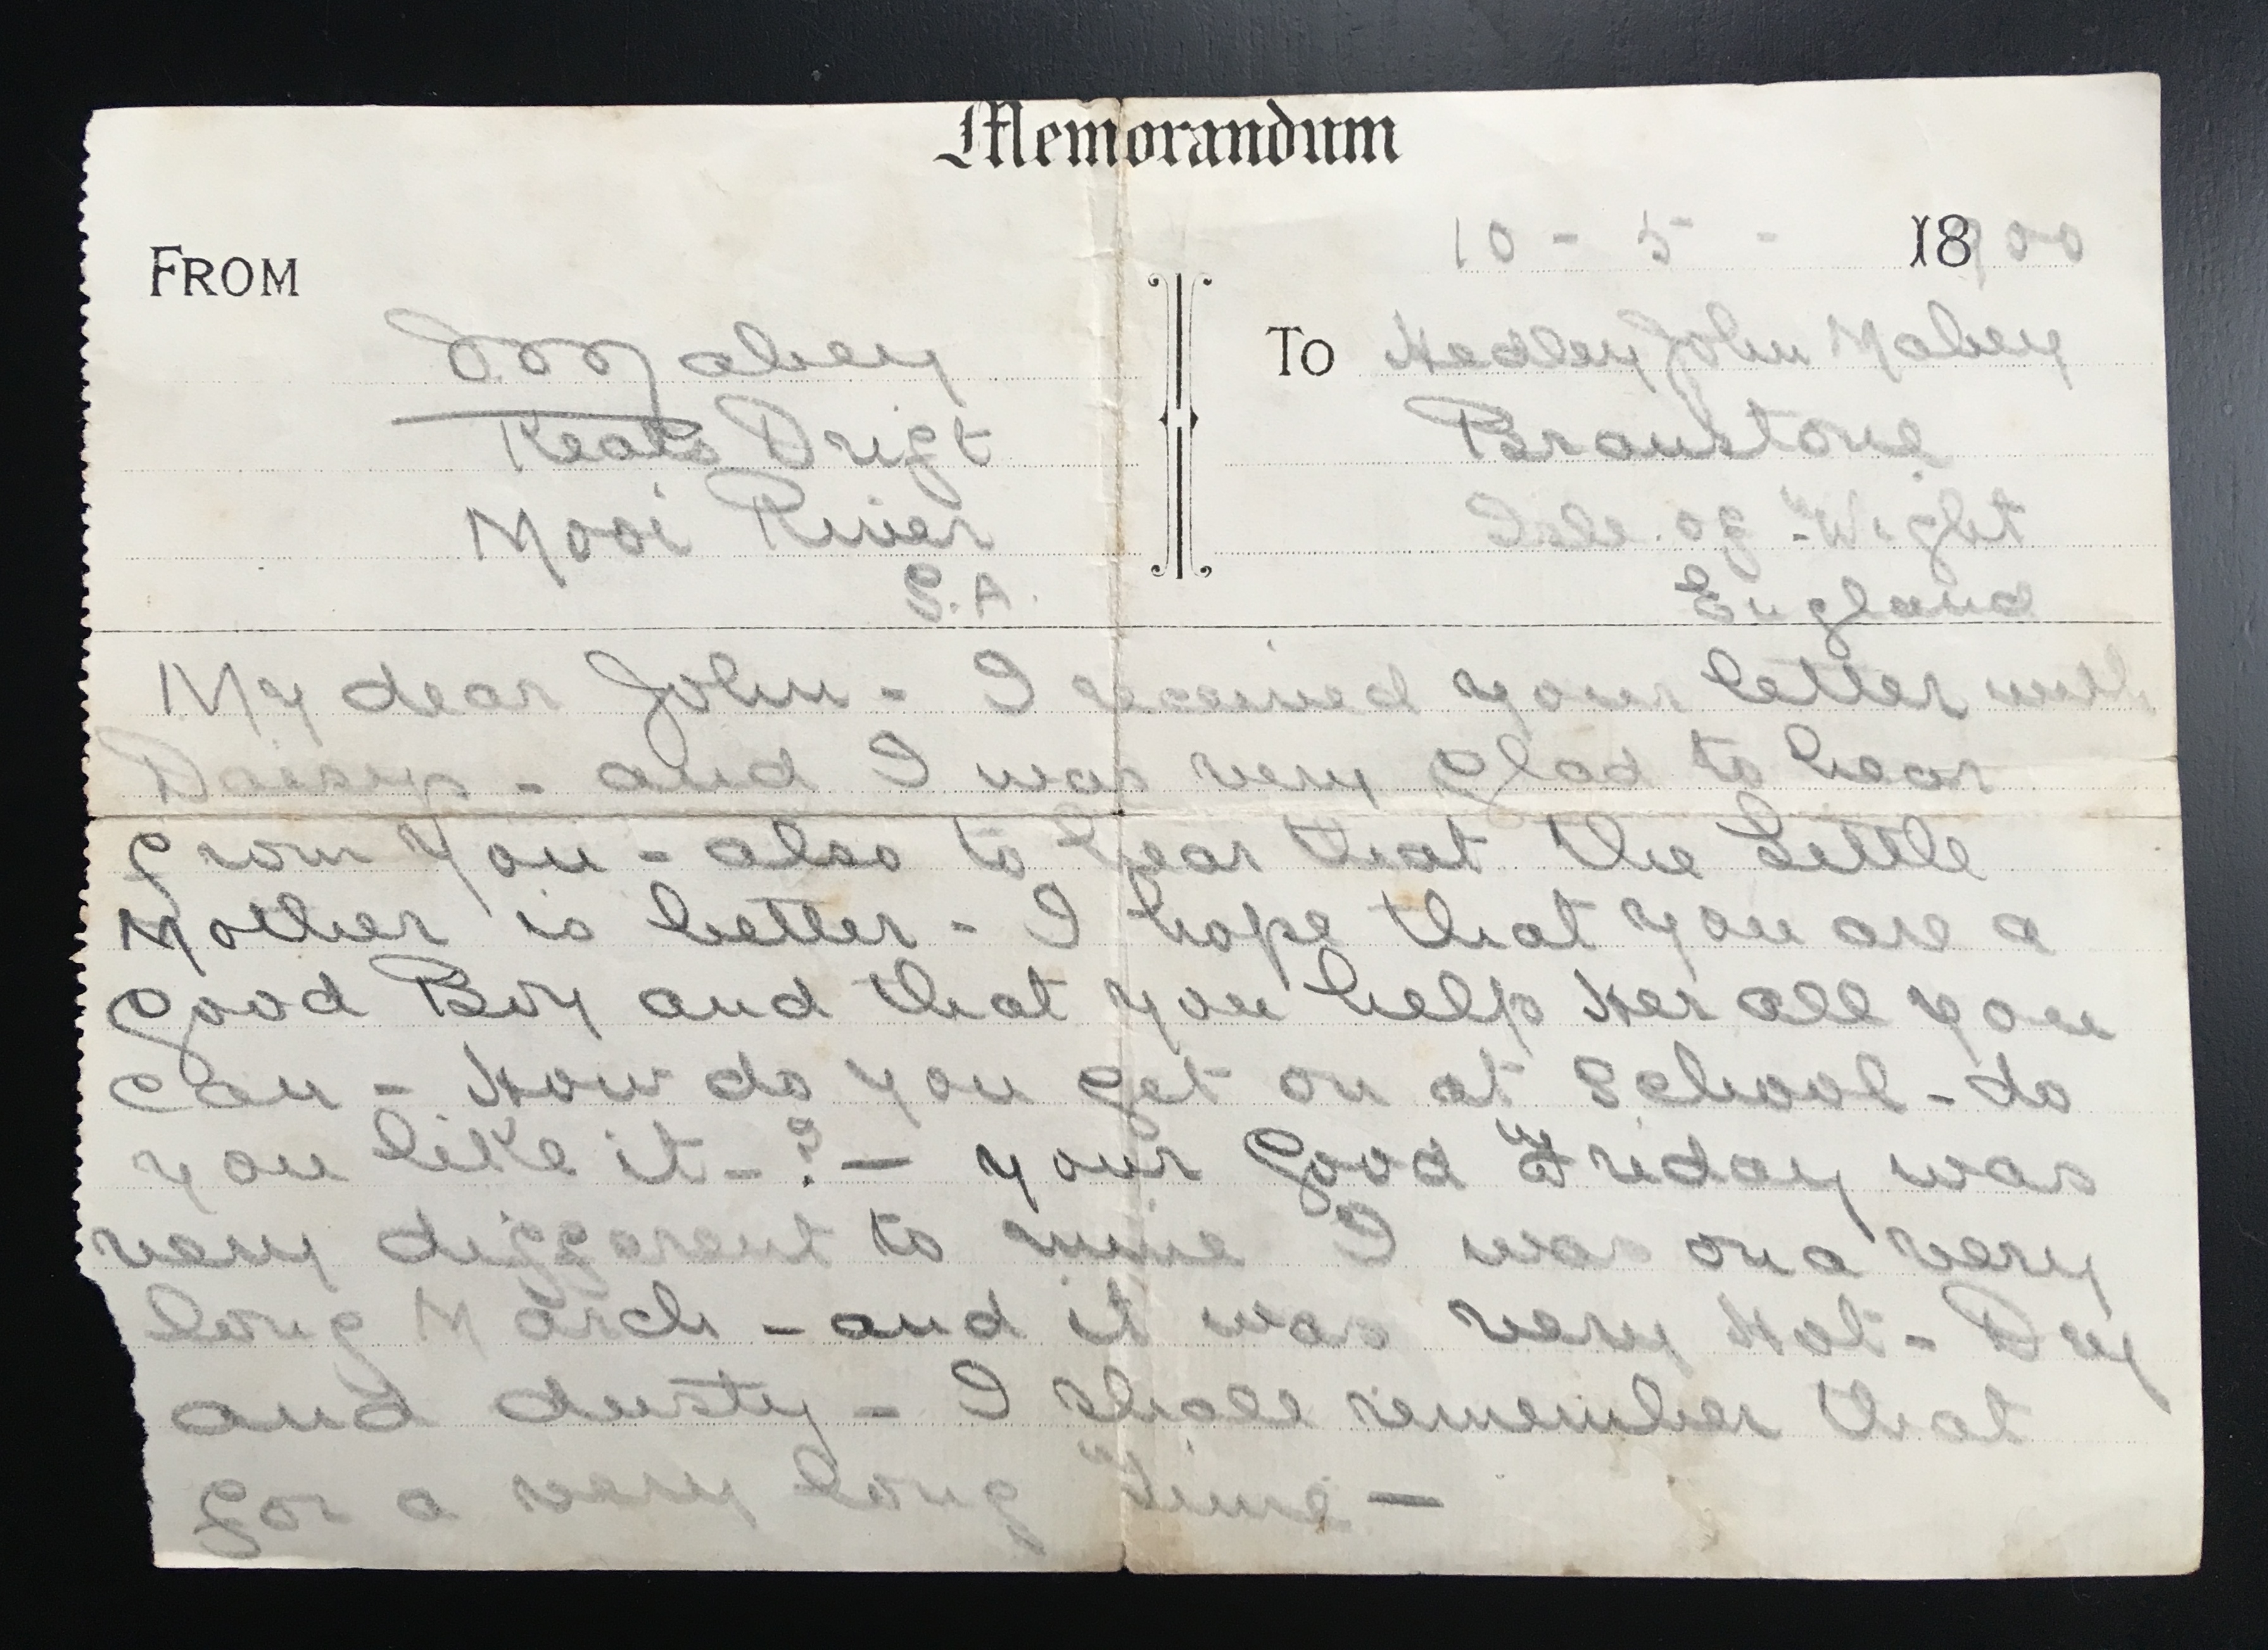 Memorandum
10 - 5 - 1900
FROM
Mabey
To Hedley John Mabey
Keats Drift
Braustone
Mooi River
Isle of Wight
S.A.
England
My dear John - I received your letter with
Daisys - and I was very glad to hear
from you - also to hear that the Little
Mother is better - I hope that you are a
good Boy and that you help Her all you
can - How do you get on at School - do
you like it - ? - your Good Friday was
very different to mine I was on a very
long March - and it was very Hot - Dry
and dusty - I shall remember that
for a very long Time -